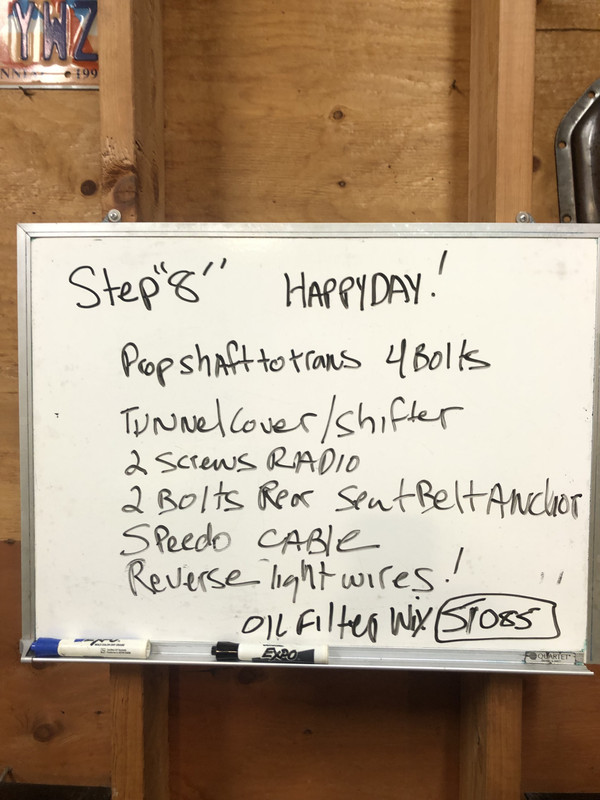 YWZ
199
Step "8" HAPPYDAY!
Propshaft to trans 4 Bolts
Tunnel cover/shifter
2 Screws RADIO
2 Bolts Rear Seat Belt Anchor
Speedo CABle
Reverse light wires!
OIL Filter Wix 51085
EXPO
EXPO
QUARTET